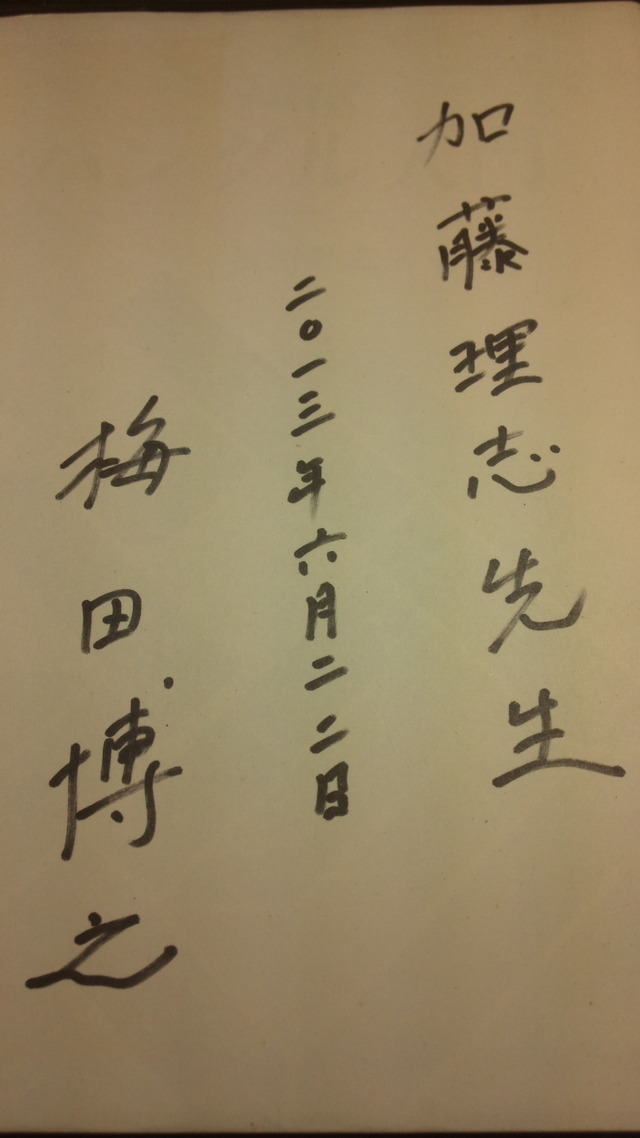 加藤理志先生
二〇一三年六月二二日
梅田博之